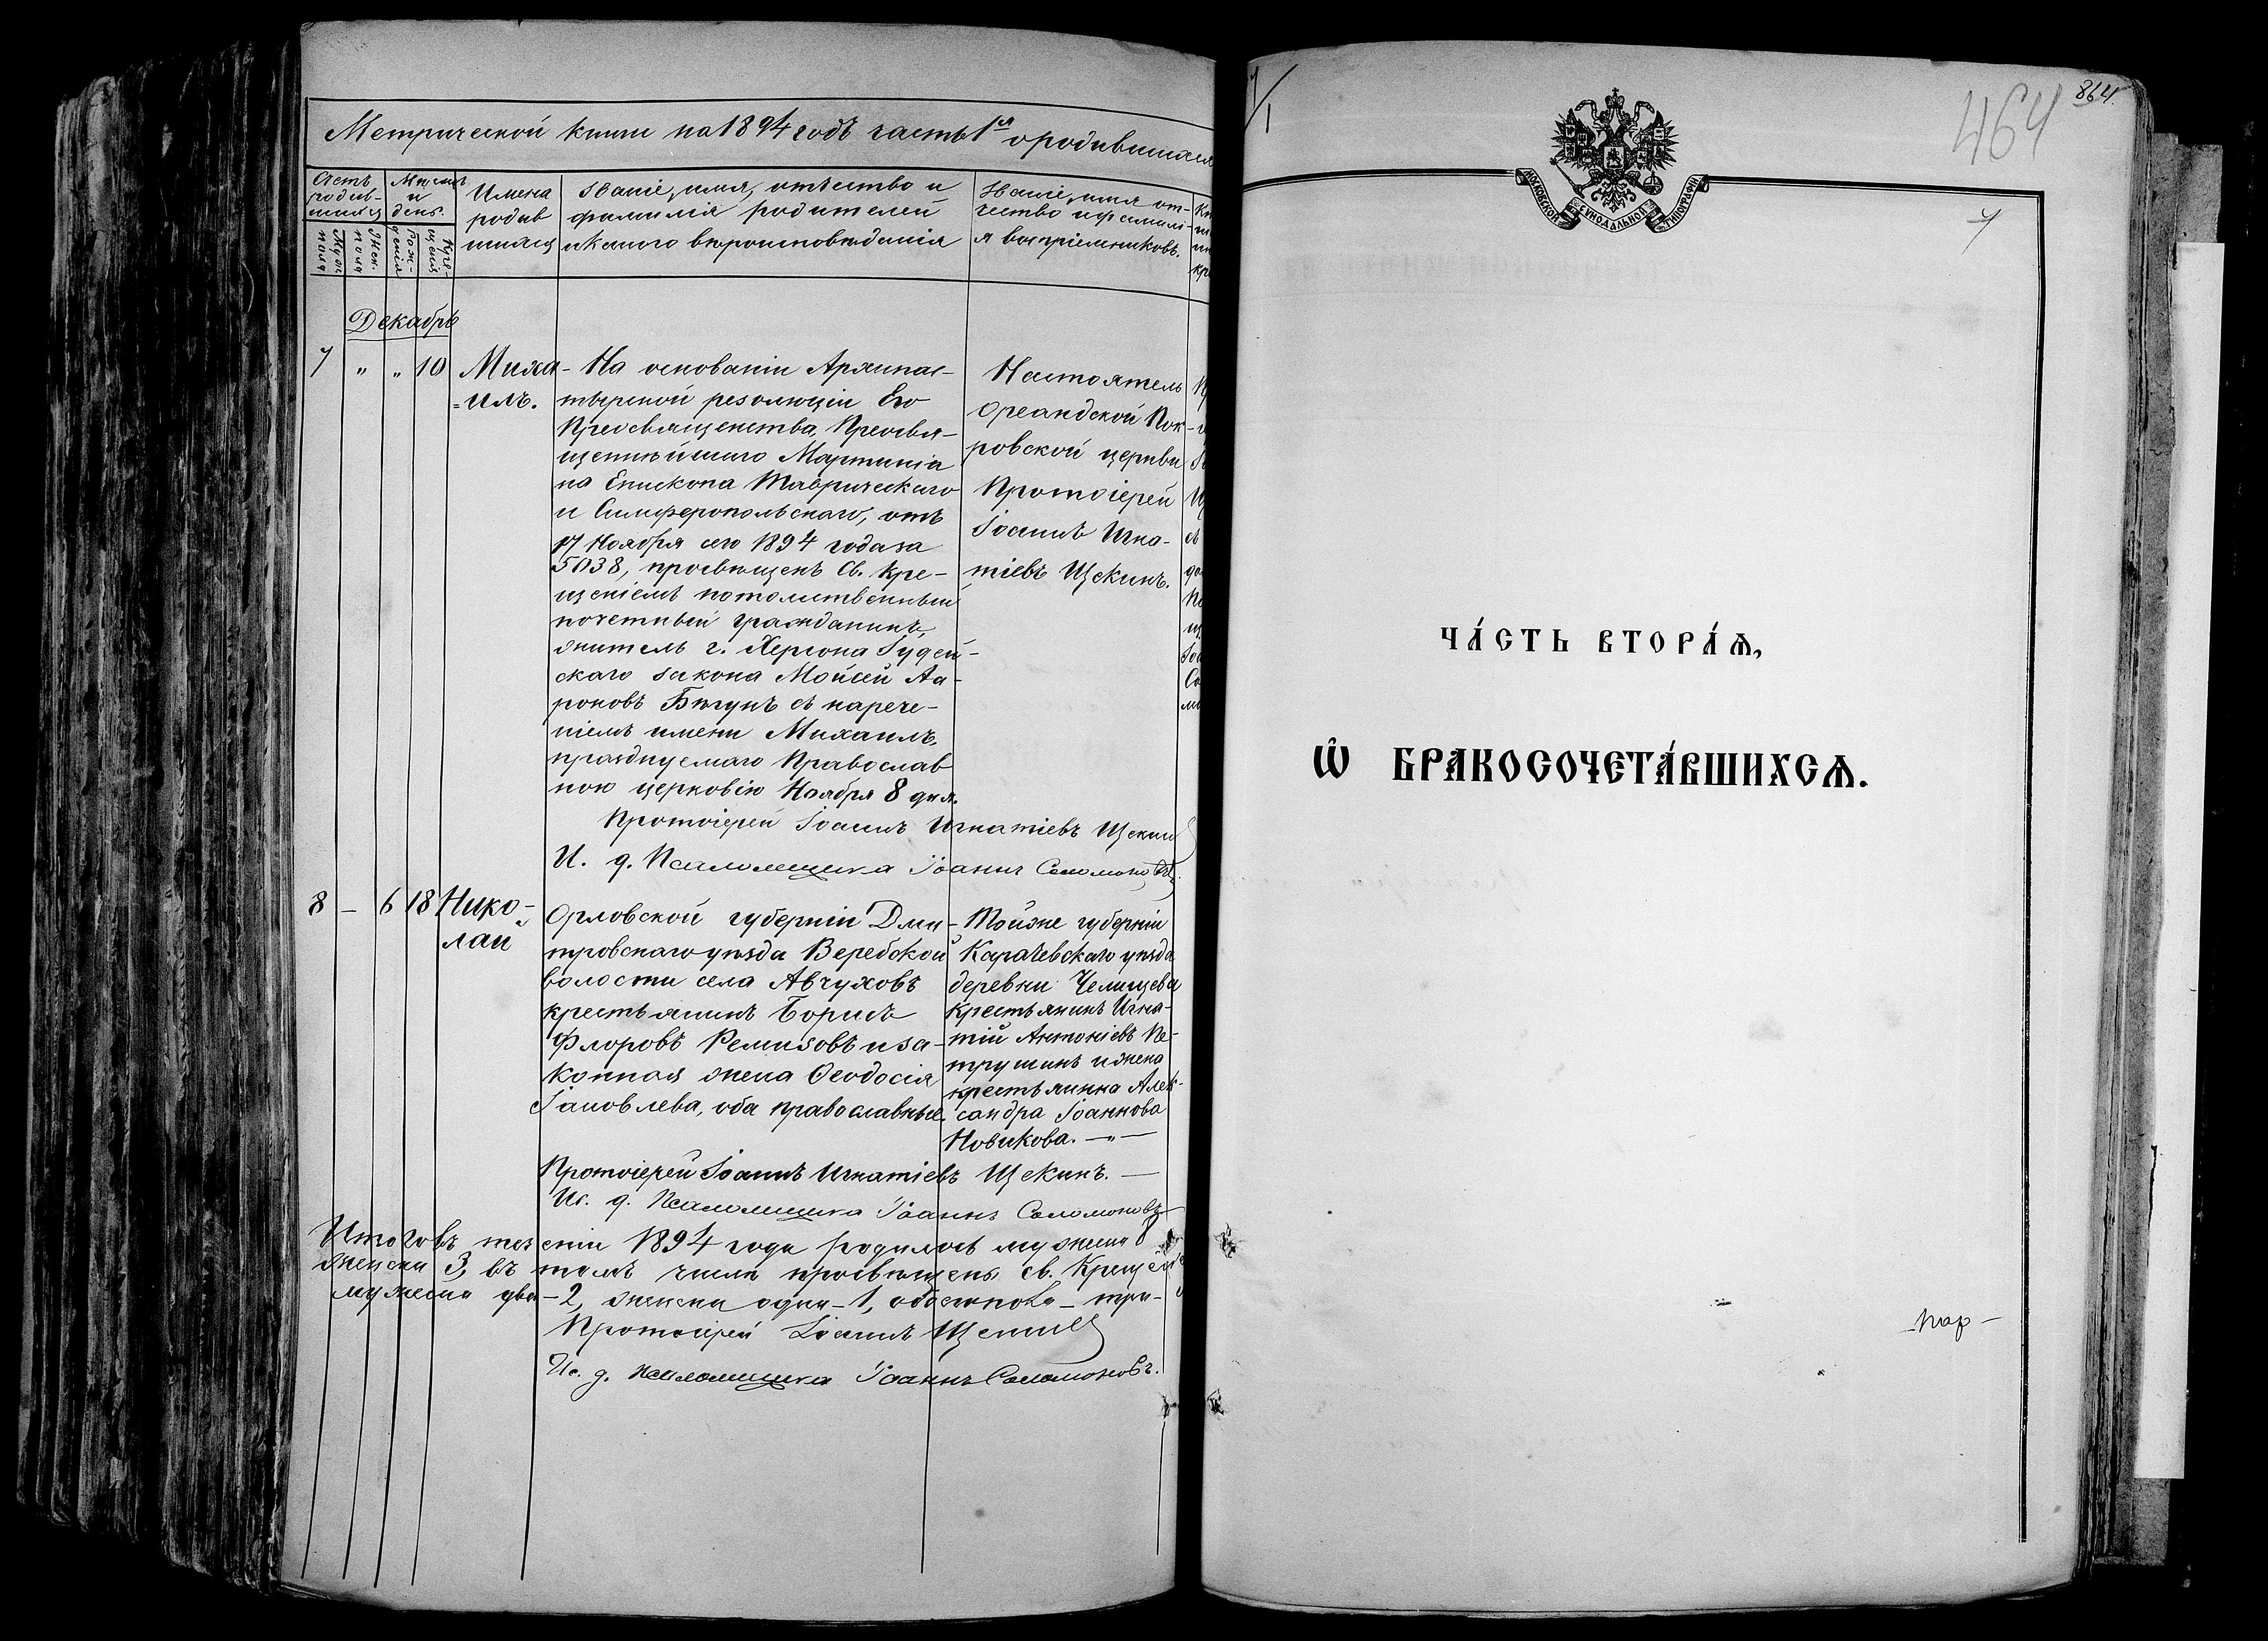 Метрической книги на 1894 годъ часть 1я о родившихся
Счетъ родив-шихся
Муж. пола
Жен. пола
Месяцъ и день.
Рож-денія
Кре-щенія
Имена родив шихся
Званіе, имя, отчество и
фамилія родителей
и какого вѣроисповѣданія
Званіе, имя от-
чество и фамилі-
я воспріемниковъ.
Декабрь
7 " " 10 Миха-
=илъ.
На основаніи Архипас-
тырской резолюціи Его
Преосвященства, Преосвя-
щеннѣйшаго Мартиніа
на Епископа Таврическаго
и Симферопольскаго, отъ
17 Ноября сего 1894 года за
5038, просвѣщенъ Св. Кре-
щеніемъ потомственный
почетный гражданинъ,
житель г. Херсона Іудей-
скаго закона Мойсей Аа-
роновъ Бѣгунъ съ нарече-
ніемъ имени Михаилъ,
празднуемаго Православ
ною церковію Ноября 8 дня.
Настоятель
Ореандской Пок-
ровской церкви
Протоіерей
Іоаннъ Игна-
тіевъ Щекинъ.
Протоіерей Іоаннъ Игнатіевъ Щекинъ
И. д. Псаломщика Іоаннъ Соломоновъ.
8 – 6 18 Нико-
лай
Орловской губерніи Дми-
тровскаго уѣзда Веребской
волости села Авчуховъ
крестьянинъ Борисъ
Флоровъ Ремизовъ и за-
конная жена Ѳеодосія
Іаковлева, оба православные.
Тойже губерніи
Карачевскаго уѣзда
деревни Челищева
крестьянинъ Игна-
тій Антоніевъ Пе-
трушинъ и жена
крестьянина Алек-
сандра Іоаннова
Новикова. —"—
Протоіерей Іоаннъ Игнатіевъ Щекинъ. —
Ис. д. Псаломщика Іоаннъ Соломоновъ
Итого въ теченіи 1894 года родилось мужеска 8
женска 3, въ томъ числѣ просвѣщены св. Крещеніе
мужеска два – 2, женска одна – 1, обоего пола – три –
Протоіерей Іоаннъ Щекинъ
Ис. д. псаломщика Іоаннъ Соломоновъ.
464
864.
МОСКОВСКОЙ СѴНОДАЛЬНОЙ ТИПОГРАФІИ
ЧА́СТЬ ВТОРА́Ѧ,
Ѽ БРАКОСОЧЕТА́ВШИХСѦ.
– пор –